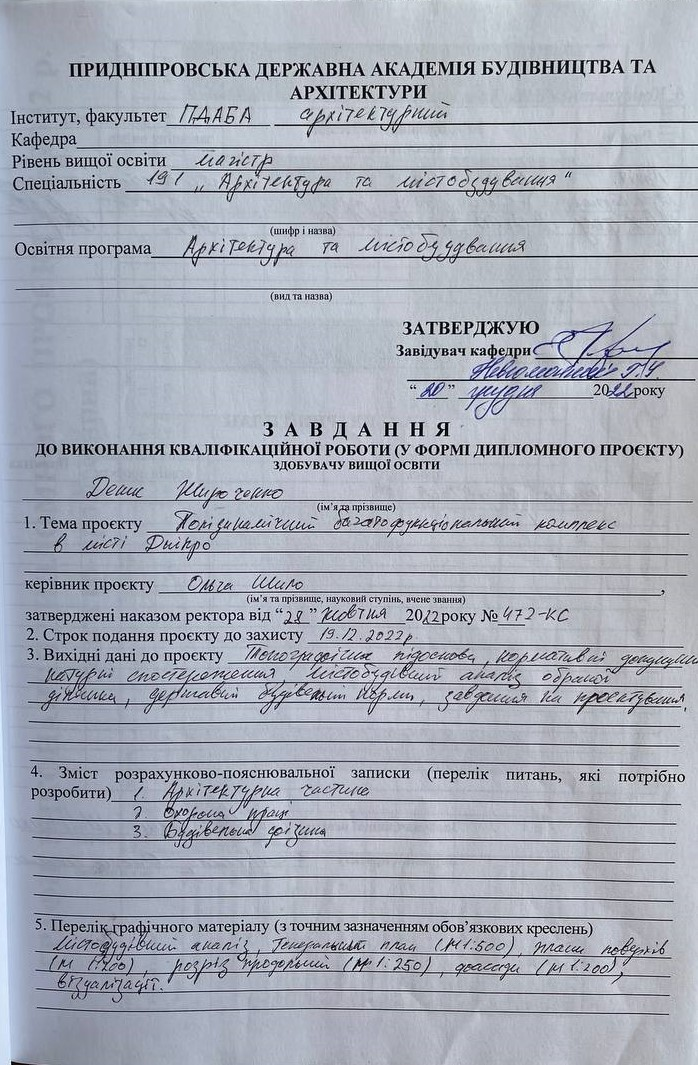 ПРИДНІПРОВСЬКА ДЕРЖАВНА АКАДЕМІЯ БУДІВНИЦТВА ТА
АРХІТЕКТУРИ
Інститут, факультет ПДАБА архітектурний
Кафедра
Рівень вищої освіти магістр
Спеціальність 191 „Архітектура та містобудування“
(шифр і назва)
Освітня програма Архітектура та містобудування
(вид та назва)
ЗАТВЕРДЖУЮ
Завідувач кафедри
“20” грудня 2022 року
ЗАВДАННЯ
ДО ВИКОНАННЯ КВАЛІФІКАЦІЙНОЇ РОБОТИ (У ФОРМІ ДИПЛОМНОГО ПРОЄКТУ)
ЗДОБУВАЧУ ВИЩОЇ ОСВІТИ
Денис
(ім’я та прізвище)
1. Тема проєкту багатофункціональний комплекс
в місті Дніпро
керівник проєкту Ольга ,
(ім’я та прізвище, науковий ступінь, вчене звання)
затверджені наказом ректора від “28” жовтня 2022 року № 472-КС
2. Строк подання проєкту до захисту 19.12.2022р
3. Вихідні дані до проєкту Топографічна підоснова, нормативні
натурні спостереження, містобудівний аналіз обраної
ділянки, державні будівельні норми, завдання на проєктування,
4. Зміст розрахунково-пояснювальної записки (перелік питань, які потрібно
розробити) 1. Архітектурна частина
2. Охорона праці
3. Будівельна фізика
5. Перелік графічного матеріалу (з точним зазначенням обов’язкових креслень)
Містобудівний аналіз, генеральний план (М1:500), плани поверхів
(М 1:200), розріз продольний (М 1:250), фасади (М 1:200),
візуалізації.